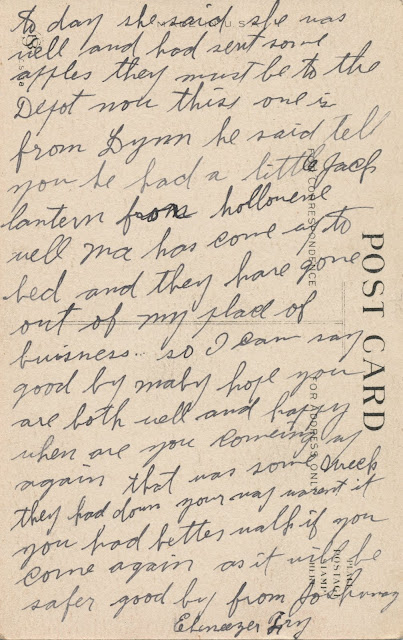 to day she said she was
well and had sent some
apples they must be to the
Depot now this one is
from Lynn he said tell
you he had a little Jack
lantern from hollowene
well Ma has come up to
bed and they have gone
out of my place of
buisness.. so I can say
good by maby hope you
are both well and happy
when are you comeing up
again that was some wreck
they had down your way warent it
you had better walk if you
come again as it will be
safer good by from
Ebineezer Fry
POST CARD
FOR CORRESPONDENCE
FOR ADDRESS ONLY
PLACE
POSTAGE
STAMP
HERE